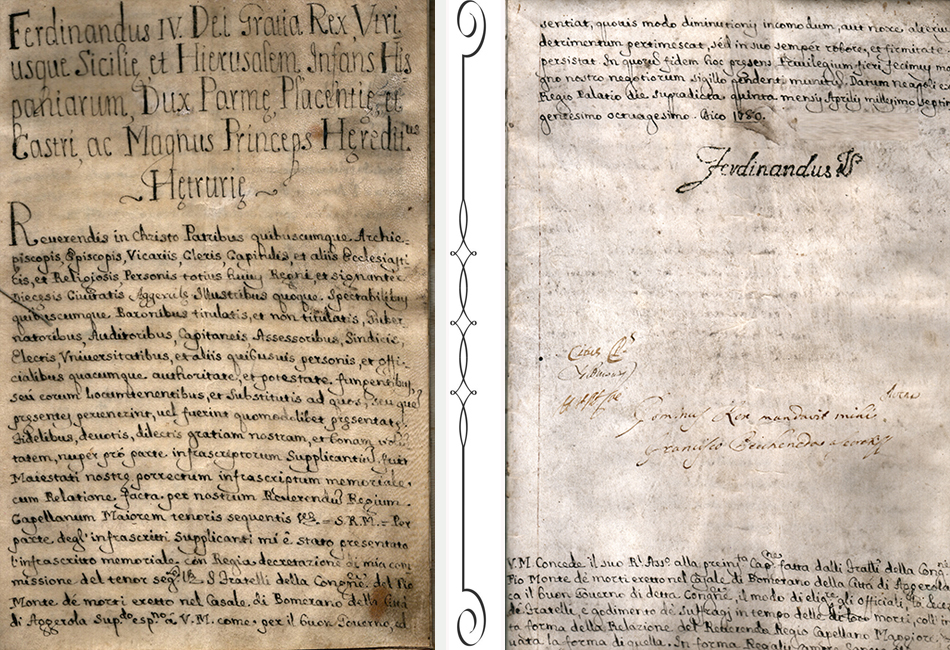 Ferdinandus IV. Dei Gratia Rex Vtri
usque Sicilię et Hierusalem, Infans His
paniarum, Dux Parmę, Placentię, et
Castri, ac Magnus Princeps Hęredit.us
Hetrurię
Reuerendis in Christo Patribus quibuscumque Archie-
piscopis, Episcopis, Vicariis, Cleris, Capitulis, et aliis Ecclesiasti
cis, et Religiosis Personis totius huius Regni, et signanter
Diecesis Ciuitatis Aggerulę Illustribus quoque Spectabilibus
quibuscumque Baronibus titulatis, et non titulatis, Guber
natoribus, Auditoribus, Capitaneis Assessoribus, Sindicis,
Electis, Vniuersitatibus, et aliis quibusuis personis, et offi-
cialibus quacumque authoritate, et potestate fungentibus,
seù eorum Locumtenentibus, et Substitutis ad quos, seu que
presentes peruenerint, uel fuerint quomodolibet presentatę
Fidelibus, deuotis, dilectis gratiam nostram, et bonam uolu
tatem, nuper prò parte infrascriptorum Supplicantium fuit
Maiestati nostrę porrectum infrascriptum memoriale,
cum Relatione facta per nostrum Reuerendum Regium
Capellanum Maiorem tenoris sequentis = S.R.M. = Per
parte degl'infrascritti Supplicanti mi è stato presentato
l'infrascritto memoriale con Regia decretazione di mia com
missione del tenor seg.te I Fratelli della Congne del Pio
Monte dè morti eretto nel Casale di Bomerano della Città
di Aggerola Sup.do esp.no à V.M. come per il buon Gouerno, ed
sentiat, quouis modo diminutionis incomodum, aut noxę alteriu
detrimentum pertimescat, sed in suo semper robore, et firmitate
persistat. In quorum fidem hoc presens Priuilegium fieri fecimus ma
gno nostro negotiorum sigillo pendenti munitum. Datum neapoli ex
Regio Palatio die supradicta quinta mensis Aprilis millesimo septin
gentesimo octuagesimo. Dico 1780.
Ferdinandus
Dominus Rex mandauit mihi
V.M. Concede il suo Rl. Assò alla preins.ta Capne fatta dalli Fratlli della Cong
Pio Monte dè morti eretto nel Casale di Bomerano della Città di Aggerola
ca il buon Gouerno di detta Congne, il modo di eligre gli officiali,
dè Fratelli, e godimento dè Suffragi in tempo delle di loro morti, coll'in
ta forma della Relazione del Reuerendo Regio Capellano Maggiore
uata la forma di quella. In forma Regalis